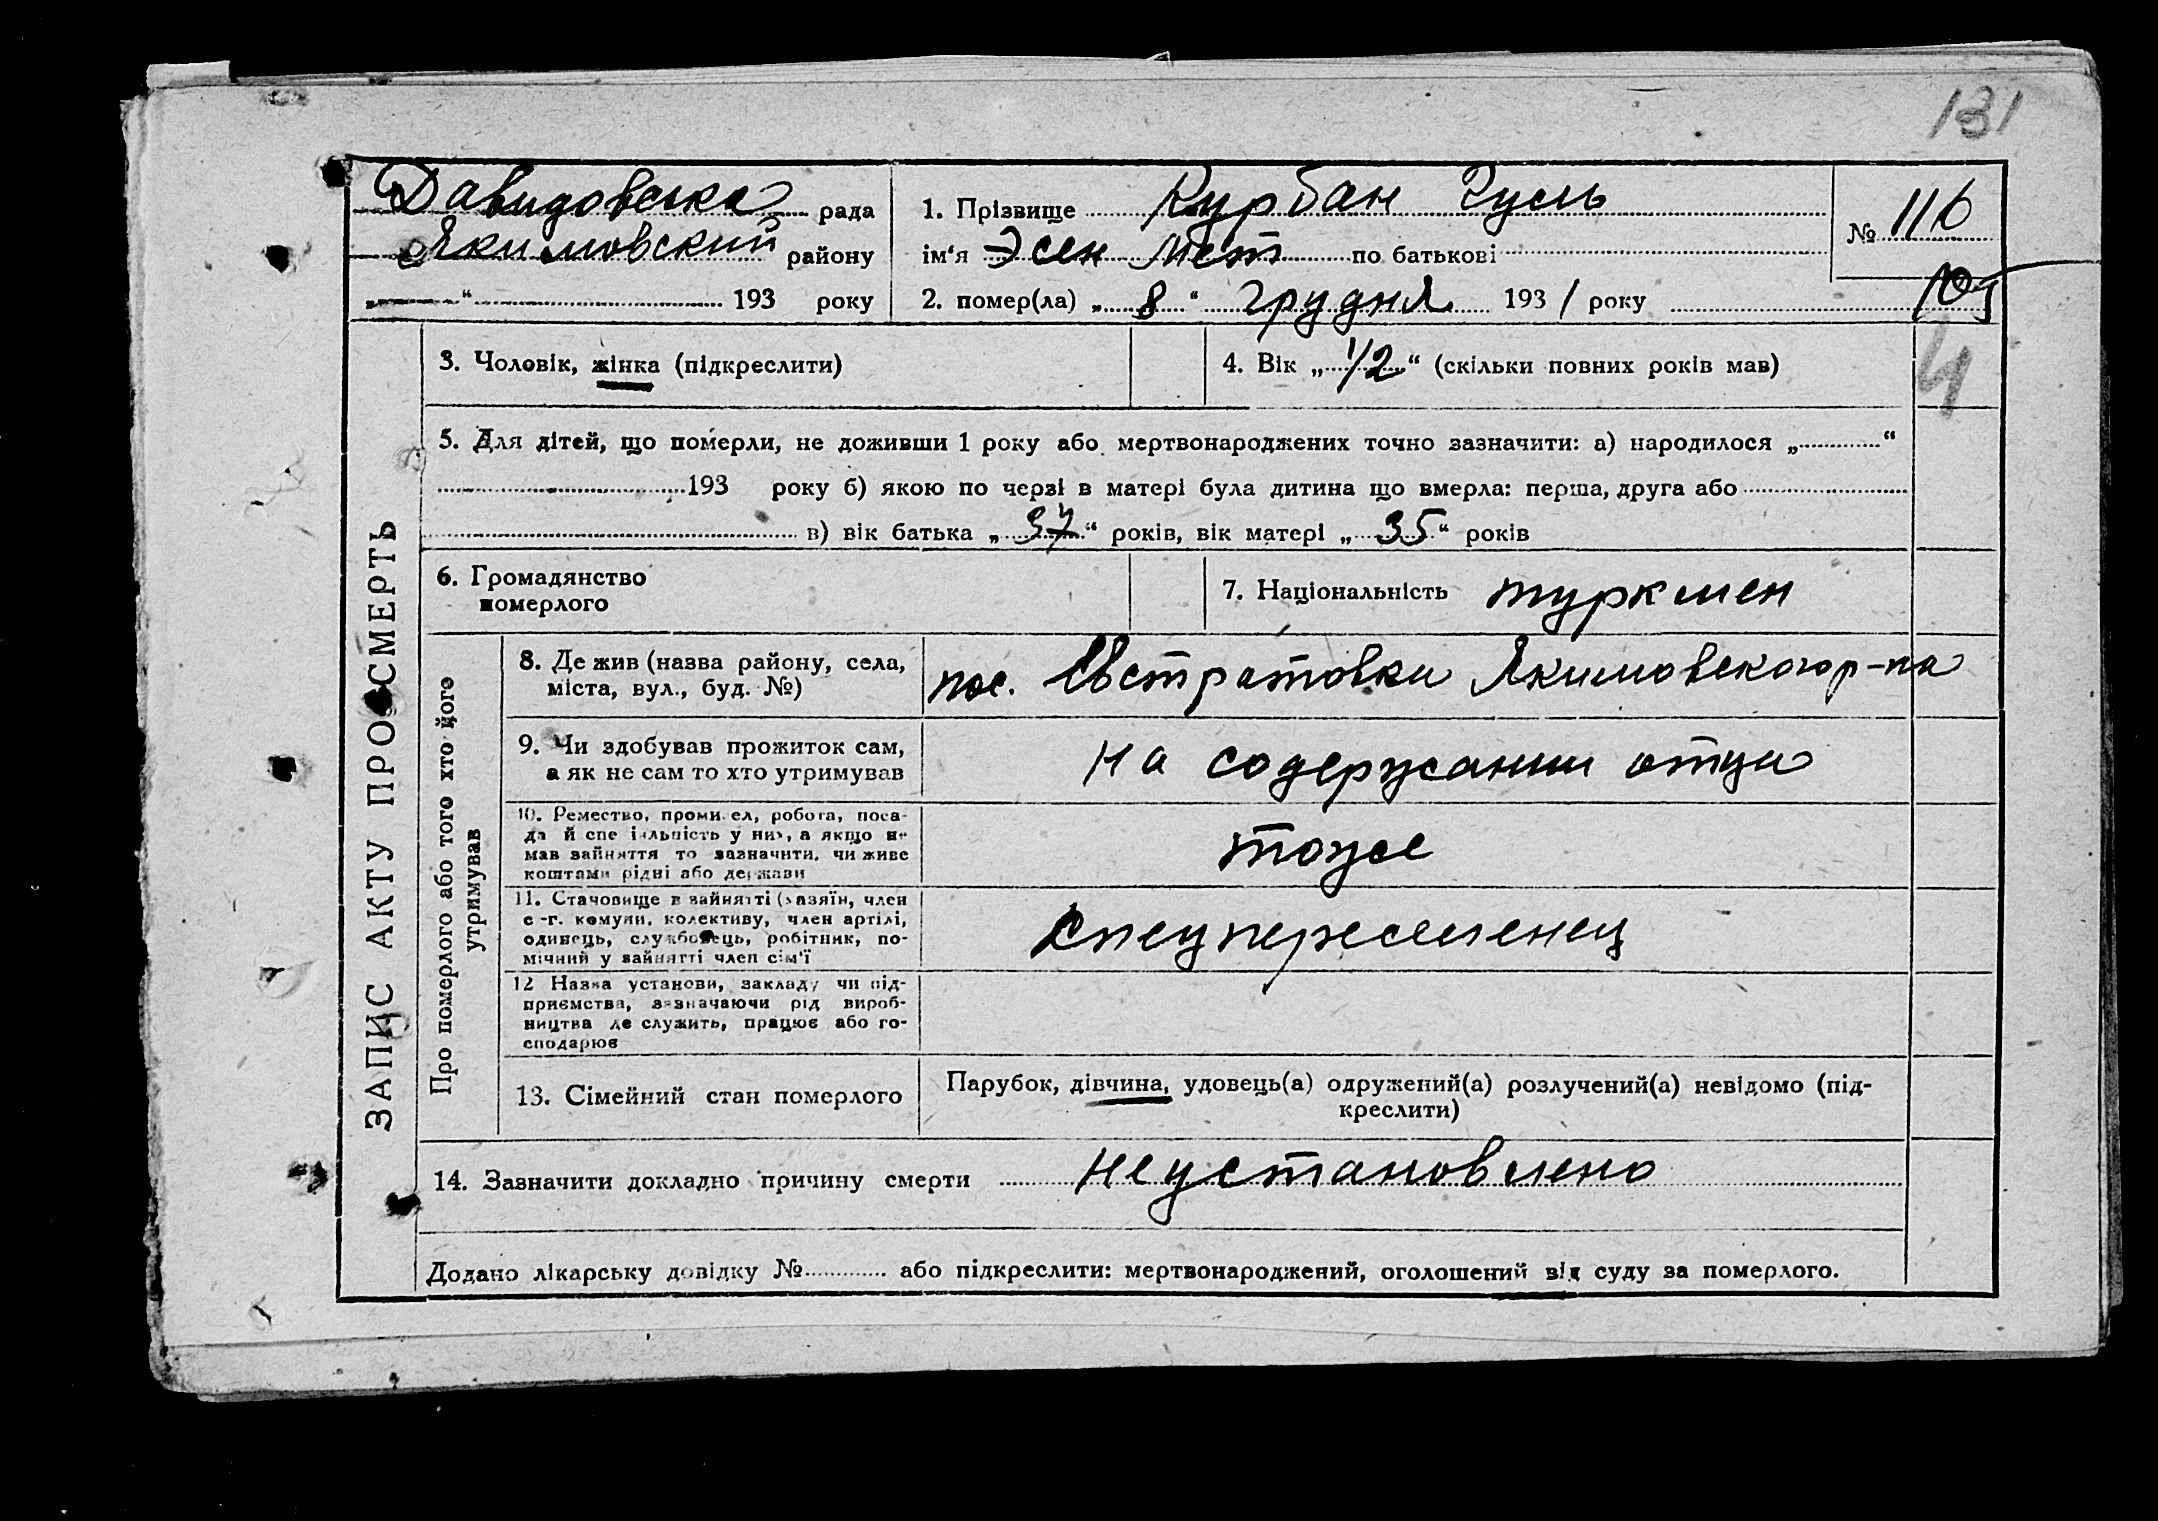 131
Давидовська рада
Якимовский району
„ “ 193 року
1. Прізвище Курбан Гусль
ім‘я Эсен Мет по батькові
№ 116
2. помер(ла) „ 8 “ грудня 1931 року
3. Чоловік, жінка (підкреслити)
4. Вік „ 1/2 “ (скільки повних років мав)
4
5. Для дітей, що померли, не доживши 1 року або мертвонароджених точно зазначити: а) народилося „ “
193 року б) якою по черзі в матері була дитина що вмерла: перша, друга або
в) вік батька „ 37 “ років, вік матері „ 35 “ років
6. Громадянство
померлого
7. Національність туркмен
ЗАПИС АКТУ ПРО СМЕРТЬ
Про померлого або того хто його
утримував
8. Де жив (назва району, села,
міста, вул., буд. №)
пос. Евстратовки Якимовского р-на
9. Чи здобував прожиток сам,
а як не сам то хто утримував
на содержании отца
10. Ремество, промисел, робота, поса-
да й спеціяльність у них, а якщо не
мав зайняття то зазначити, чи живе
коштами рідні або держави
тоже
11. Становище в зайнятті (хазяїн, член
с.-г. комуни, колективу, член артілі,
одинець, службовець, робітник, по-
мічний у зайнятті член сім‘ї
спецпереселенец
12 Назва установи, закладу чи під-
приємства, зазначаючи рід вироб-
ництва де служить, працює або го-
сподарює
13. Сімейний стан померлого
Парубок, дівчина, удовець(а) одружений(а) розлучений(а) невідомо (під-
креслити)
14. Зазначити докладно причину смерти неустановлено
Додано лікарську довідку № або підкреслити: мертвонароджений, оголошений від суду за померлого.